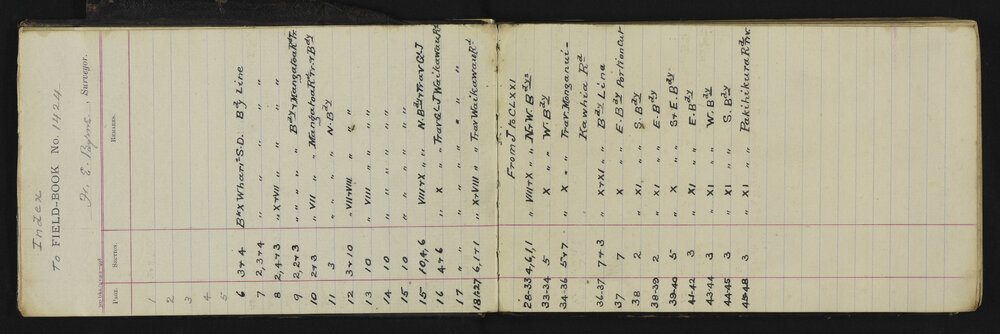 Index
To FIELD-BOOK No. 1424
H. E. Byrne, Surveyor.
PAGE. SECTION. REMARKS.
1
2
3
4
5
6 3+4 Bk X Wharo S.D. Bdy Line
7 2,3+4 " " " "
8 2,4+3 " X+VII " " "
9 2,2+3 " " " " Bdy + Mangatoa Rd Tr.
10 2+3 " VII " " Mangatoa Rd Tr + Bdy
11 3 " " " " N. Bdy
12 3+10 " VII+VIII " " "
13 10 " VIII " " "
14 10 " " " " "
15 10 " " " " "
15 10,4,6 " VIII+X " " N. Bdy + Trav G-J
16 4+6 " X " " Trav G-J Waikawau Rd
17 " " " " " " "
18+27 6,1+1 " X+VIII " " Trav Waikawau Rd
From J to CLXXI
28-33 4,6,1,1 " VIII+X " " N+W. Bdys
33-34 5 " X " " W. Bdy
34-36 5+7 " X " " Trav. Manganui-
Kawhia Rd
36-37 7+3 " X+XI " " Bdy Line
37 7 " X " " E. Bdy Portion Cut
38 2 " XI " " S. Bdy
38-39 2 " XI " " E. Bdy
39-40 5 " X " " S+E. Bdy
41-42 3 " XI " " E. Bdy
43-44 3 " XI " " W. Bdy
44-45 3 " XI " " S. Bdy
45-48 3 " XI " " Pakihikura Rd Trv.